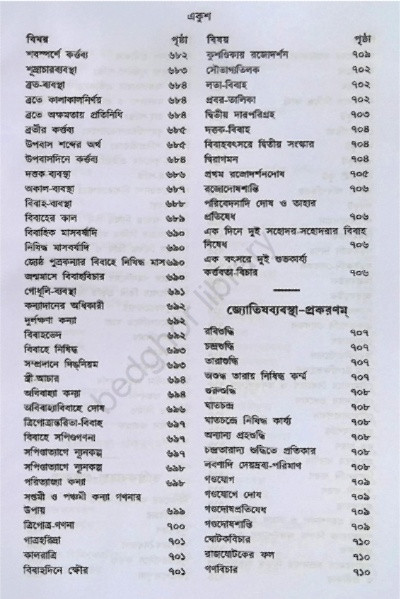 একুশ
বিষয় পৃষ্ঠা
শবস্পর্শে কর্ত্তব্য ৬৮২
শূদ্রাচারব্যবস্থা ৬৮৩
ব্রত-ব্যবস্থা ৬৮৪
ব্রতে কালাকালনির্ণয় ৬৮৪
ব্রতে অক্ষমতায় প্রতিনিধি ৬৮৪
ব্রতীর কর্ত্তব্য ৬৮৫
উপবাস শব্দের অর্থ ৬৮৫
উপবাসদিনে কর্ত্তব্য ৬৮৪
দত্তক ব্যবস্থা ৬৮৬
অকাল-ব্যবস্থা ৬৮৭
বিবাহ-ব্যবস্থা ৬৮৮
বিবাহের কাল ৬৮৯
বিবাহিক মাসবর্ষাদি ৬৯০
নিষিদ্ধ মাসবর্ষাদি ৬৯০
জ্যেষ্ঠ পুত্রকন্যার বিবাহে নিষিদ্ধ মাস ৬৯০
জন্মমাসে বিবাহবিচার ৬৯০
গোধূলি-ব্যবস্থা ৬৯১
কন্যাদানের অধিকারী ৬৯২
দুর্লক্ষণা কন্যা ৬৯২
বিবাহভেদ ৬৯২
বিবাহে নিষিদ্ধ ৬৯৩
সম্প্রদানে দিঙ্‌নিয়ম ৬৯৩
স্ত্রী-আচার ৬৯৪
অবিবাহ্যা কন্যা ৬৯৪
অবিবাহ্যাবিবাহে দোষ ৬৯৬
ত্রিগোত্রান্তরিতা-বিবাহ ৬৯৭
বিবাহে সপিণ্ডগণনা ৬৯৭
সপিণ্ডত্যাগে ন্যূনকল্প ৬৯৭
সপিণ্ডত্যাগে ন্যূনকল্প ৬৯৮
পরিত্যাজ্যা কন্যা ৬৯৮
সপ্তমী ও পঞ্চমী কন্যা গণনার
উপায় ৬৯৯
ত্রিগোত্র-গণনা ৭০০
গাত্রহরিদ্রা ৭০১
কালরাত্রি ৭০১
বিবাহদিনে ক্ষৌর ৭০১
বিষয় পৃষ্ঠা
কুশণ্ডিকায় রজোদর্শন ৭০৯
সৌভাগ্যতিলক ৭০২
লতা-বিবাহ ৭০২
প্রবর-তালিকা ৭০২
দ্বিতীয় দারপরিগ্রহ ৭০৩
দত্তক-বিবাহ ৭০৪
বিবাহবৎসরে দ্বিতীয় সংস্কার ৭০৪
দ্বিরাগমন ৭০৪
প্রথম রজোদর্শনদোষ ৭০৫
রজোদোষশান্তি ৭০৬
পরিবেদনাদি দোষ ও তাহার
প্রতিষেধ ৭০৬
এক দিনে দুই সহোদর-সহোদরার বিবাহ
নিষেধ ৭০৬
এক বৎসরে দুই শুভকার্য্য
কর্ত্তব্যতা-বিচার ৭০৬
জ্যোতিষব্যবস্থা-প্রকরণম্
রবিশুদ্ধি ৭০৭
চন্দ্রশুদ্ধি ৭০৭
তারাশুদ্ধি ৭০৭
অশুদ্ধ তারায় নিষিদ্ধ কর্ম্ম ৭০৭
গুরুশুদ্ধি ৭০৮
ঘাতচন্দ্র ৭০৮
ঘাতচন্দ্রে নিষিদ্ধ কার্য্য ৭০৮
অন্যান্য গ্রহশুদ্ধি ৭০৮
চন্দ্রতারাদ্য শুদ্ধিতে প্রতিকার ৭০৮
লবণাদি দেয়দ্রব্য-পরিমাণ ৭০৮
গণ্ডযোগ ৭০৯
গণ্ডযোগে দোষ ৭০৯
গণ্ডদোষপ্রতিষেধ ৭০৯
গণ্ডদোষশান্তি ৭০৯
ঘোটকবিচার ৭১০
রাজঘোটকের ফল ৭১০
গণবিচার ৭১০
bedghor library